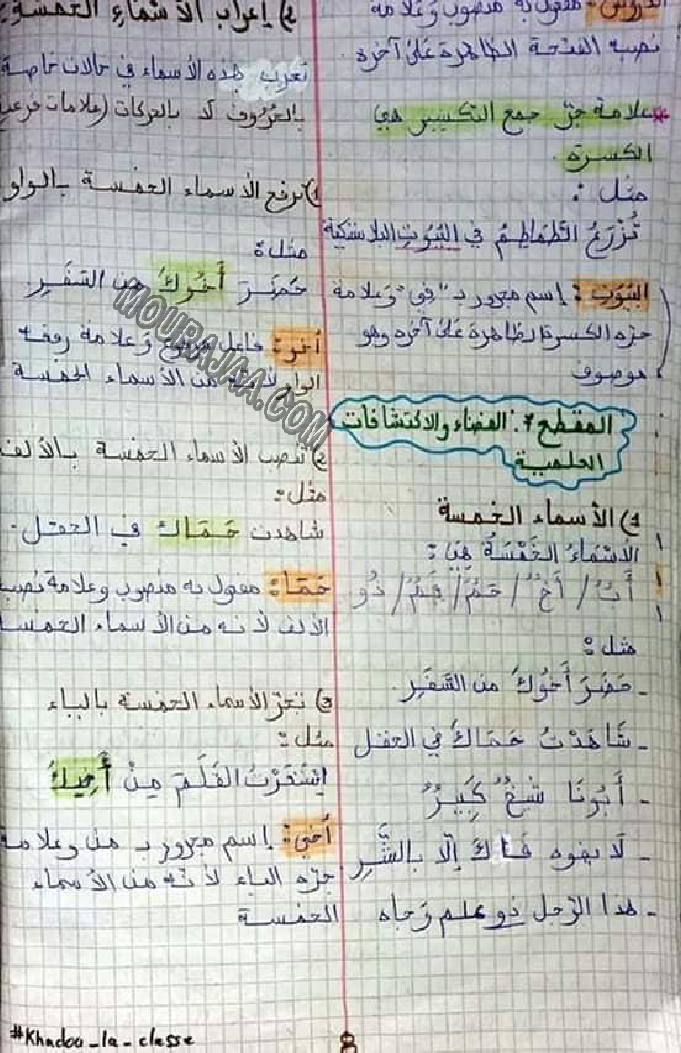 الدروس: مفعول به منصوب وعلامة
نصبه الفتحة الظاهرة على آخره
*علامة جرّ جمع التكسير هي
الكسرة.
مثل:
تُزْرَعُ الطَّمَاطِمُ في البُيُوتِ البلاستيكية
البُيُوتِ: إسم مجرور بـ "في" وعلامة
جره الكسرة الظاهرة على آخره وهو
موصوف
المقطع 7: الفضاء والاكتشافات
العلمية
1) الأسماء الخمسة
الاسْمَاءُ الخَمْسَةُ هِيَ:
أَبٌ / أَخٌ / حَمٌ / فَمٌ / ذُو
مثل:
- حَضَرَ أَخُوكَ من السَّفَرِ.
- شَاهَدْتُ حَمَاكَ في الحقل
- أَبُونَا شَيْخٌ كَبِيرٌ
- لَا يفوه فَاكَ إلّا بالشَّرِ
- هذا الرّجل ذو علم وَجاه
2) إعراب الأسْمَاءِ الخمسة:
تعرب هذه الأسماء في حالات خاصة
بالحُرُوف لا بالحركات (علامات فرعية
1) ترفع الأسماء الخمسة بالواو
مثل:
حَضَرَ أَخُوكَ من السَّفَرِ.
أخو: فاعل مرفوع وعلامة رفعه
الواو لأنه من الأسماء الخمسة
2) تنصب الأسماء الخمسة بالألف
مثل:
شاهدت حَمَاكَ في الحقل.
حَمَا: مفعول به منصوب وعلامة نصبه
الألف لأنه من الأسماء الخمسة
3) تجرّ الأسماء الخمسة بالياء
مثل:
اِسْتَعَرْتُ القَلَمَ مِنْ أَخِيكَ
أَخِي: إسم مجرور بـ من وعلامة
جرّه الياء لأنه من الأسماء
الخمسة
MOURAJAA.COM
#Khadou_la_classe
8